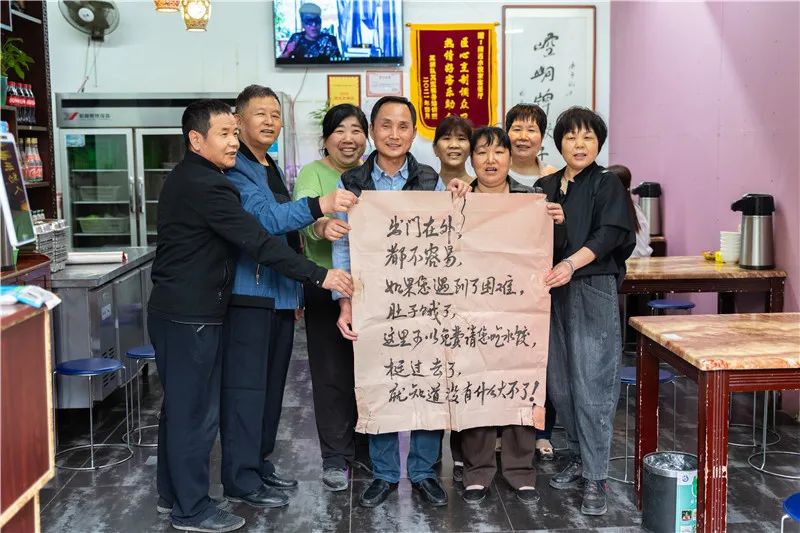 热情好客乐助
出门在外，
都不容易，
如果您遇到了困难，
肚子饿了，
这里可以免费请您吃水饺，
挺过去了，
就知道没有什么大不了！